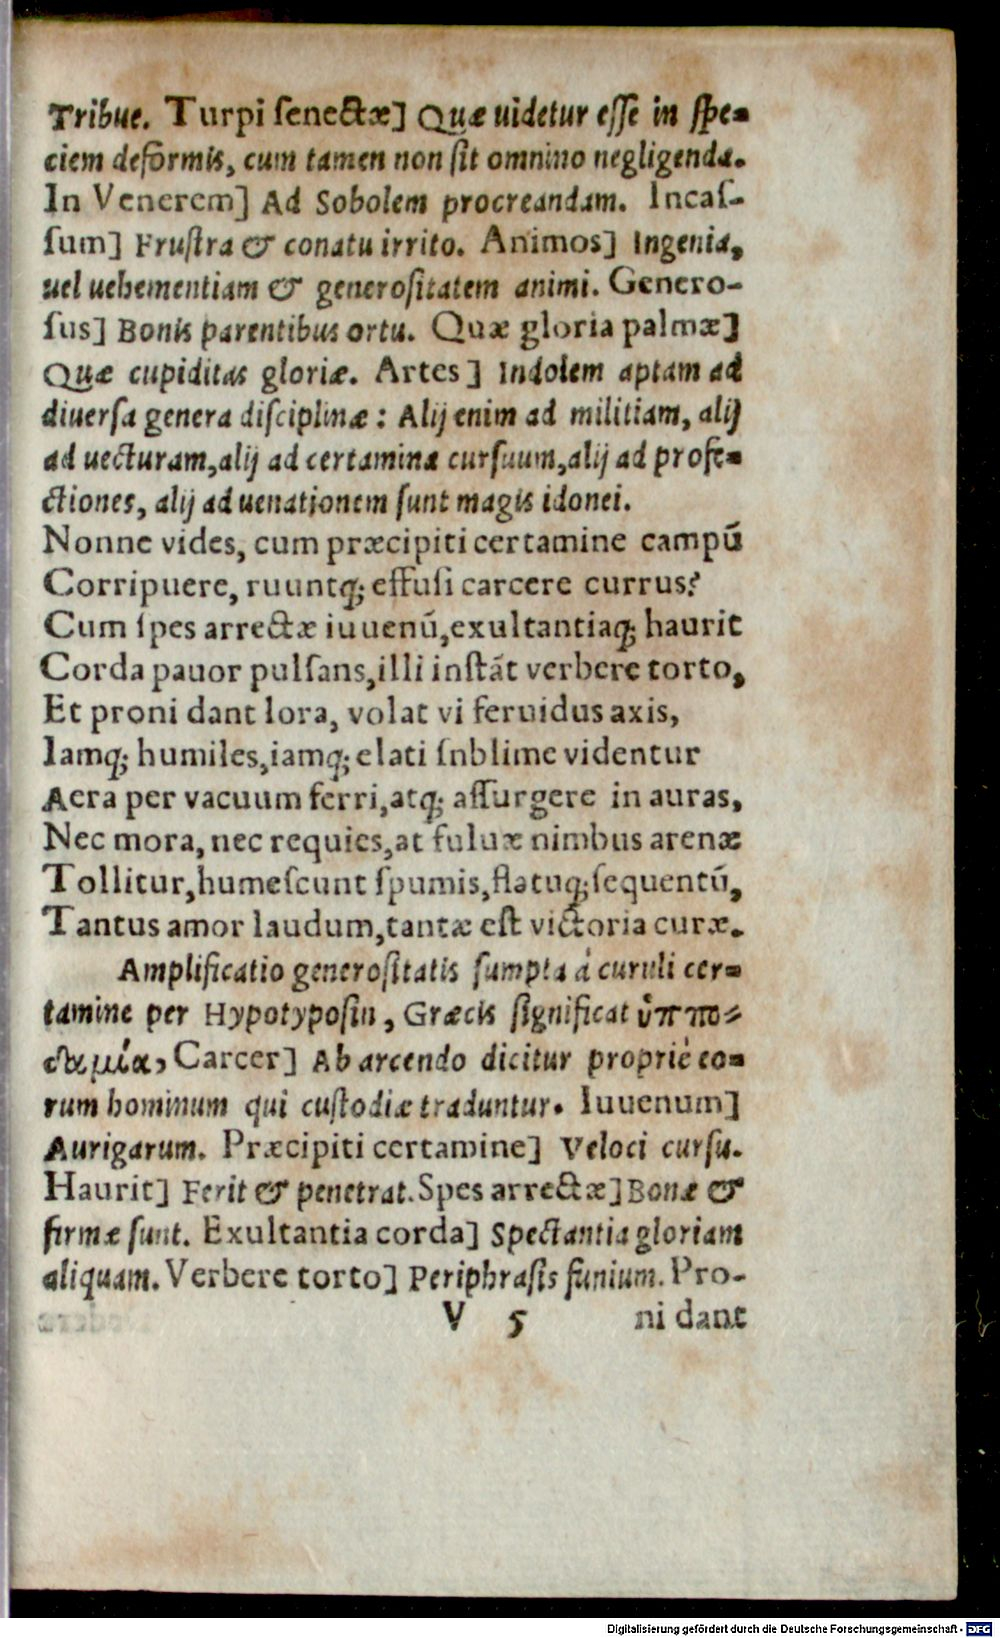 Tribue. Turpi ſenectæ] Quæ uidetur eſſe in ſpe-
ciem deformis, cum tamen non ſit omnino negligenda.
In Venerem] Ad Sobolem procreandam. Incaſ-
ſum] Fruſtra & conatu irrito. Animos] Ingenia,
uel uehementiam & generoſitatem animi. Genero-
ſus] Bonis parentibus ortu. Quæ gloria palmæ]
Quæ cupiditas gloriæ. Artes] Indolem aptam ad
diuerſa genera diſciplinæ: Alij enim ad militiam, alij
ad uecturam, alij ad certamina curſuum, alij ad profe-
ctiones, alij ad uenationem ſunt magis idonei.
Nonne vides, cum præcipiti certamine campū
Corripuere, ruuntq; effuſi carcere currus?
Cum ſpes arrectæ iuuenū, exultantiaq; haurit
Corda pauor pulſans, illi inſtāt verbere torto,
Et proni dant lora, volat vi feruidus axis,
Iamq; humiles, iamq; elati ſnblime videntur
Aera per vacuum ferri, atq; aſſurgere in auras,
Nec mora, nec requies, at fuluæ nimbus arenæ
Tollitur, humeſcunt ſpumis, flatuq; ſequentū,
Tantus amor laudum, tantæ eſt victoria curæ.
Amplificatio generoſitatis ſumpta à curuli cer-
tamine per Hypotypoſin, Græcis ſignificat
Carcer] Ab arcendo dicitur propriè eo-
rum hominum qui cuſtodiæ traduntur. Iuuenum]
Aurigarum. Præcipiti certamine] Veloci curſu.
Haurit] Ferit & penetrat. Spes arrectæ] Bonæ &
firmæ ſunt. Exultantia corda] Spectantia gloriam
aliquam. Verbere torto] Periphraſis funium. Pro-
V 5 ni dant
Digitalisierung gefördert durch die Deutsche Forschungsgemeinschaft - DFG